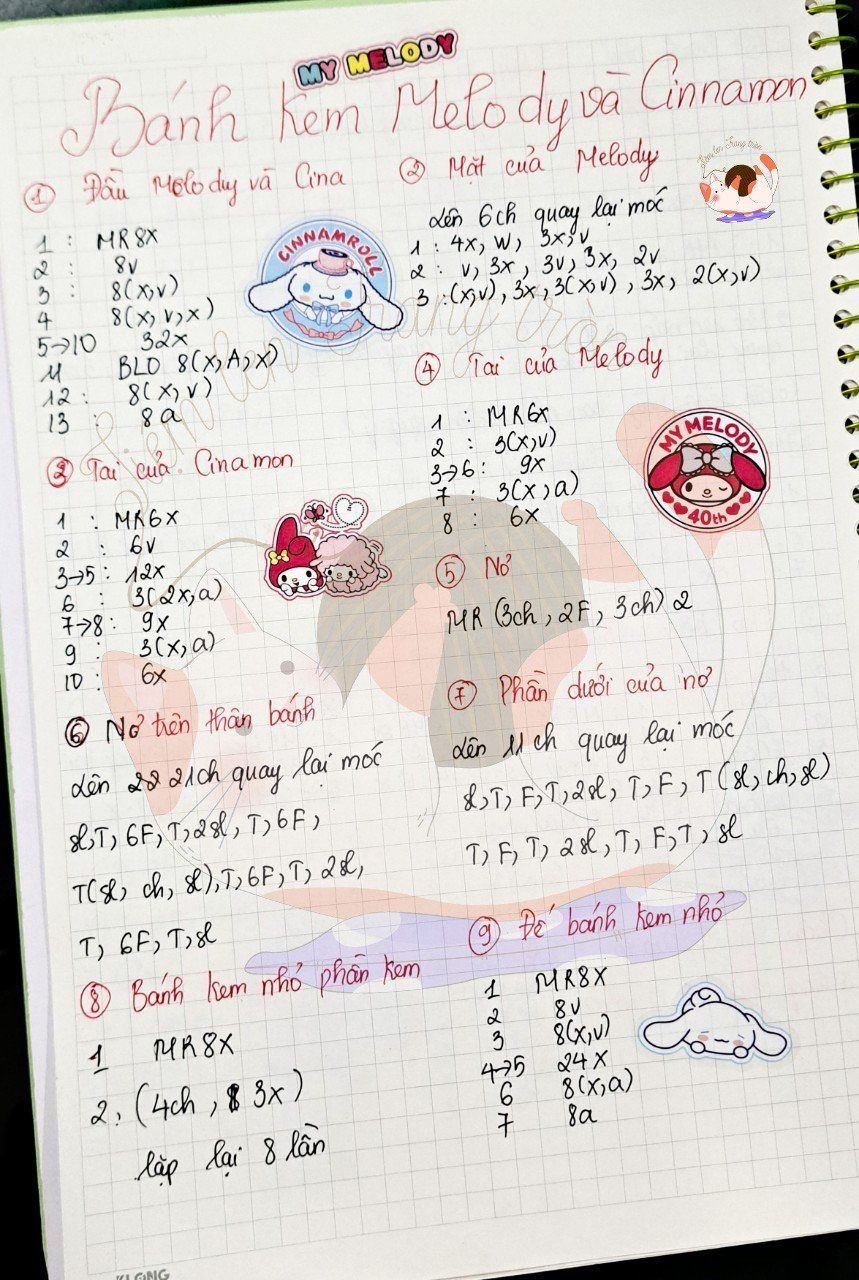 MY MELODY
Bánh kem Melody và Cinnamon
① Đầu Melody và Cina
1 : MR 8X
2 : 8v
3 : 8(x,v)
4 8(x,v,x)
5→10 32x
11 BLO 8(x,A,x)
12 : 8(x,v)
13 : 8a
CINNAMROLL
② Mặt của Melody
Lên 6ch quay lại móc
1 : 4x, w, 3x, v
2 : v, 3x, 3v, 3x, 2v
3 : (x,v), 3x, 3(x,v), 3x, 2(x,v)
③ Tai của Cinamon
1 : MR6X
2 : 6v
3→5 : 12x
6 : 3(2x,a)
7→8 : 9x
9 : 3(x,a)
10 : 6x
④ Tai của Melody
1 : MR6x
2 : 3(x,v)
3→6 : 9x
7 : 3(x,a)
8 : 6x
MY MELODY
40th
⑤ Nơ
MR (3ch, 2F, 3ch) 2
⑥ Nơ trên thân bánh
Lên 21ch quay lại móc
sl, T, 6F, T, 2sl, T, 6F,
T(sl, ch, sl), T, 6F, T, 2sl,
T, 6F, T, sl
⑦ Phần dưới của nơ
Lên 11ch quay lại móc
sl, T, F, T, 2sl, T, F, T (sl, ch, sl)
T, F, T, 2sl, T, F, T, sl
⑧ Bánh kem nhỏ phần kem
1 MR8X
2. (4ch, 3x)
lặp lại 8 lần
⑨ Đế bánh kem nhỏ
1 MR8X
2 8v
3 8(x,v)
4→5 24x
6 8(x,a)
7 8a
Tiệm len Trung trần
KLONG